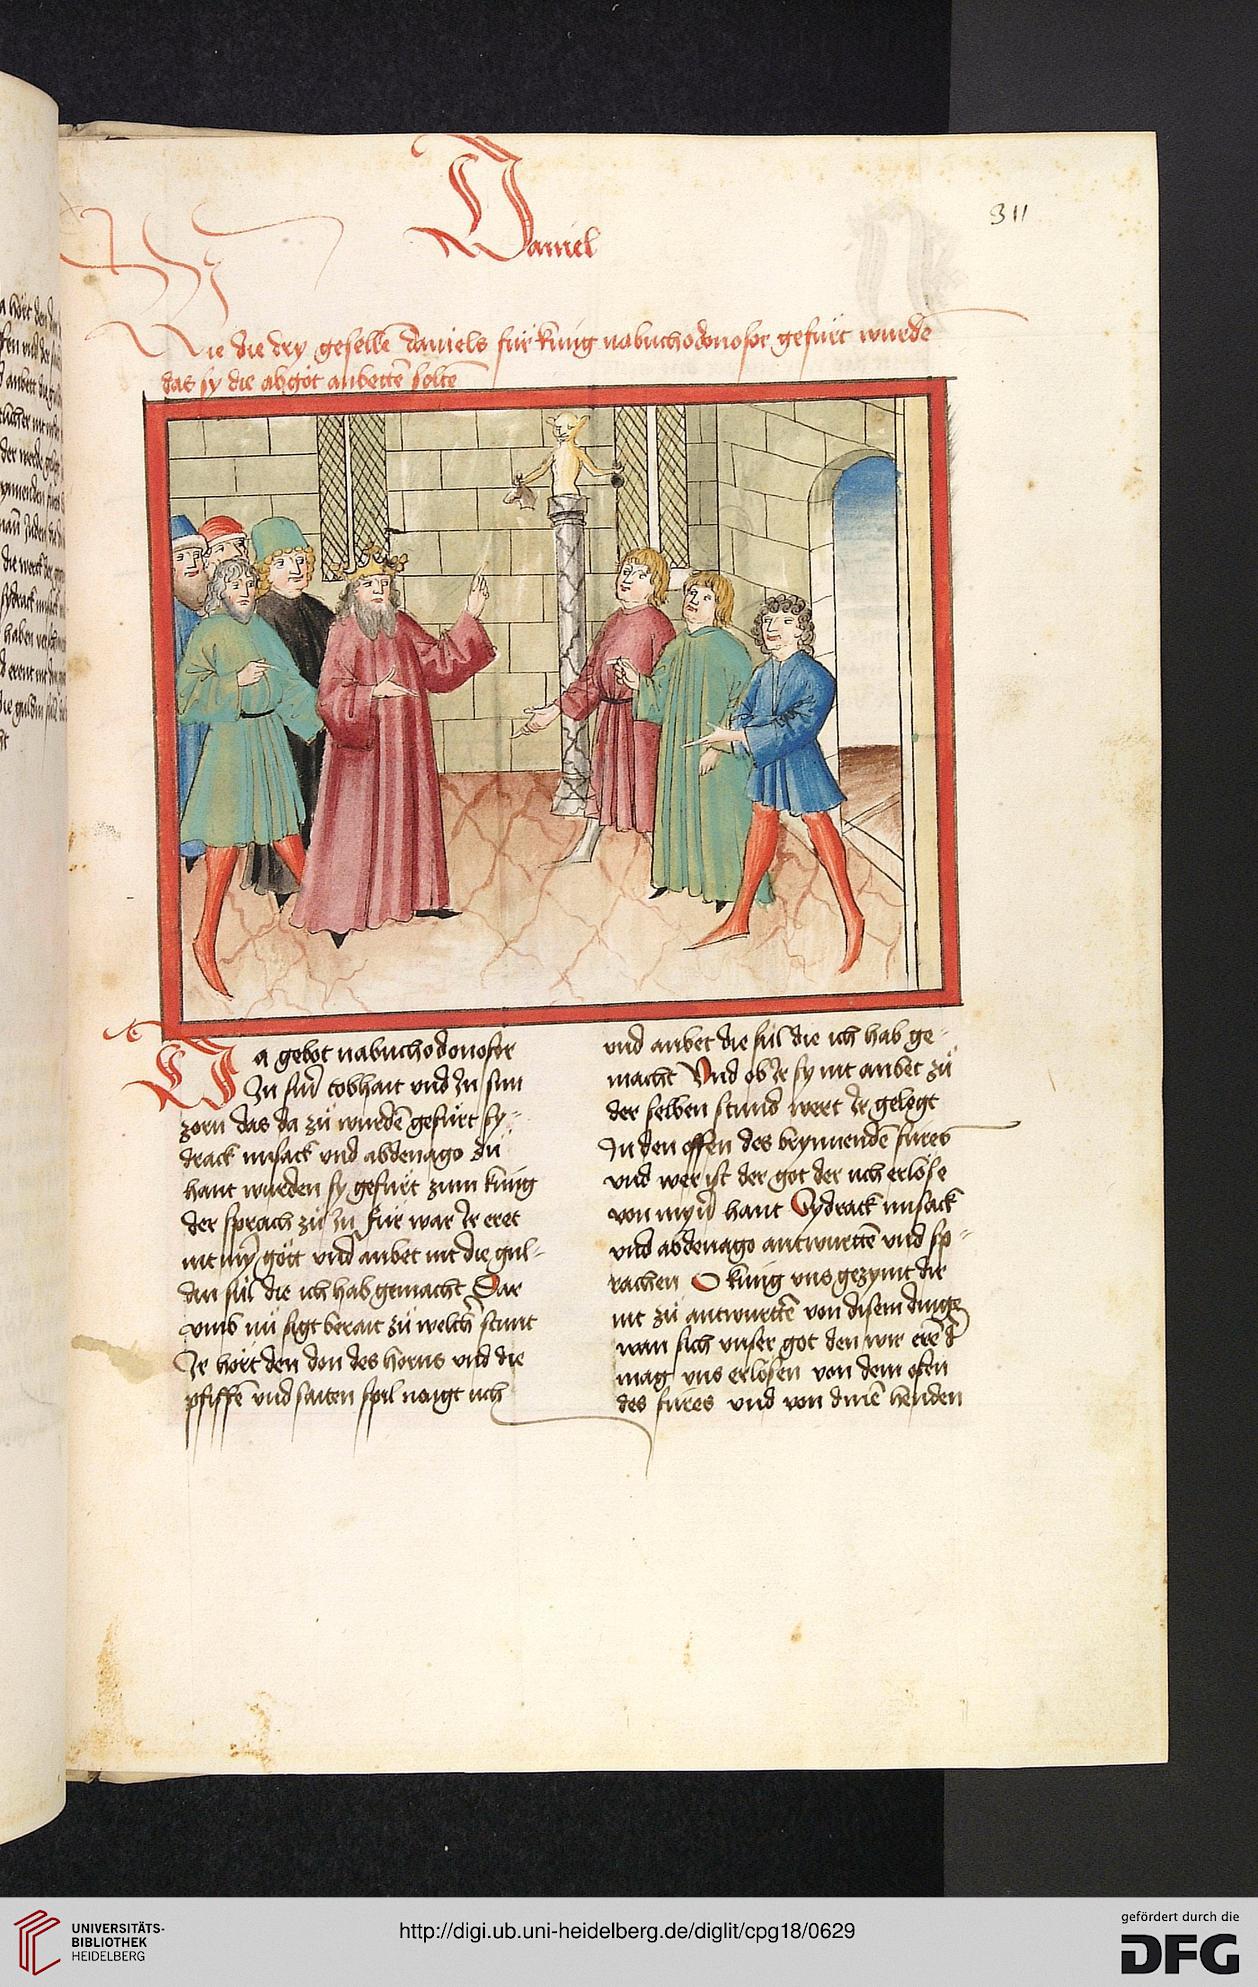 Daniel
311
Wie die dry geselle͂ daniels für küng nabuchodonosor gefürt wurde͂
das sy die abgöt anbette͂ solte͂
Da gebot nabuchodonosor
In sim̃ tobhait und In sim
zorn das da zů wurde͂ gefürt sy-
drack misack vnd abdenago zů
hant wurden sy gefürt zum küng
der sprach zů In für war Ir eret
nit my͂ gött vnd anbet nit die gul-
din sül die ich hab gemacht Dar
vmb nů sigt berait zů welch͂ stunt
Ir hört den don des horns vnd die
pfiffe͂ vnd saiten spil naigt üch
vnd anbet die sül die ich hab ge-
macht Vnd ob Ir sy nit anbet zů
der selben stund wert Ir gelegt
In den offen des brynnende͂ füres
vnd wer ist der got der üch erlöse
von myn͂ hant Sydrack misack
vnd abdenago antwurtte͂ vnd sp-
rachen O küng vns gezymt dir
nit zů antwurtte͂ von disem dinge
wan sich vnser got den wir ere͂ d͂
mag vns erlösen von dem ofen
des füres vnd von dine͂ henden
UNIVERSITÄTS-
BIBLIOTHEK
HEIDELBERG
http://digi.ub.uni-heidelberg.de/diglit/cpg18/0629
gefördert durch die
DFG